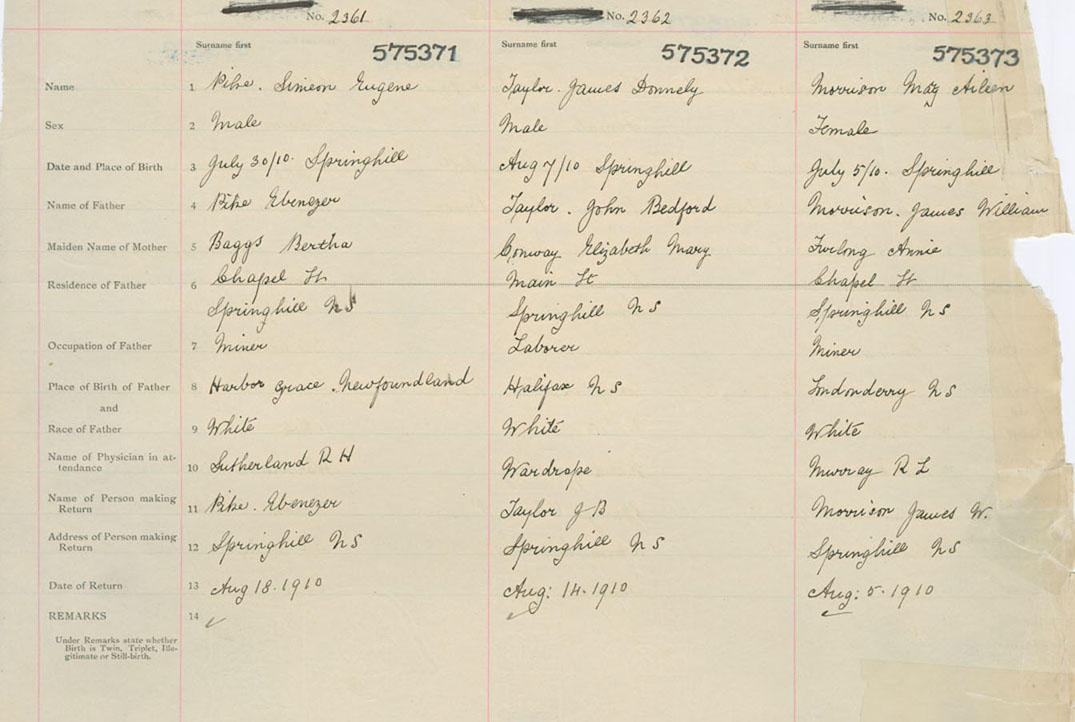 No. 2361 No. 2362 No. 2363
Surname first 575371 Surname first 575372 Surname first 575373
Name 1 Pike. Simeon Eugene Taylor. James Donnely Morrison Mary Aileen
Sex 2 Male Male Female
Date and Place of Birth 3 July 30/10. Springhill Aug 7/10 Springhill July 5/10. Springhill
Name of Father 4 Pike Ebenezer Taylor. John Bedford Morrison. James William
Maiden Name of Mother 5 Baggs Bertha Conway Elizabeth Mary Furlong Annie
Residence of Father 6 Chapel St Main St Chapel St
Springhill NS Springhill NS Springhill NS
Occupation of Father 7 Miner Laborer Miner
Place of Birth of Father 8 Harbor Grace. Newfoundland Halifax NS Londonderry NS
and
Race of Father 9 White White White
Name of Physician in at-
tendance 10 Sutherland R H Wardrope Murray R L
Name of Person making
Return 11 Pike. Ebenezer Taylor J B Morrison James W.
Address of Person making
Return 12 Springhill NS Springhill NS Springhill NS
Date of Return 13 Aug 18. 1910 Aug: 14. 1910 Aug: 5. 1910
REMARKS 14
Under Remarks state whether
Birth is Twin, Triplet, Ille-
gitimate or Still-birth.